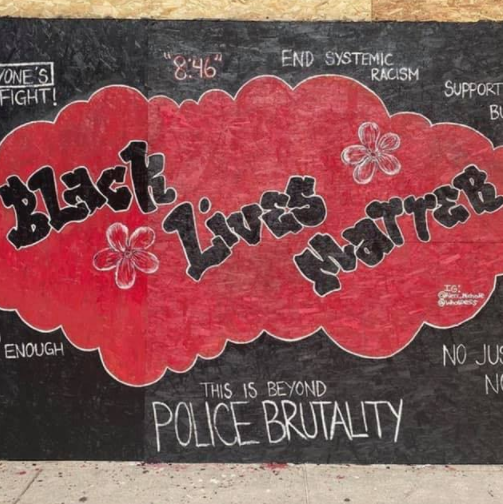 YONE'S
FIGHT!
"8:46"
END SYSTEMIC
RACISM
SUPPORT
BU
Black
Lives
MaTTER
IG:
ENOUGH
THIS IS BEYOND
POLICE BRUTALITY
NO JUS
NO